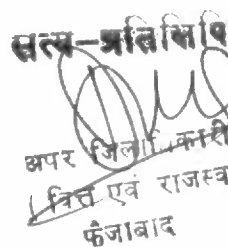 सत्य-प्रतिलिपि
अपर जिलाधिकारी
वित्त एवं राजस्व
फैजाबाद